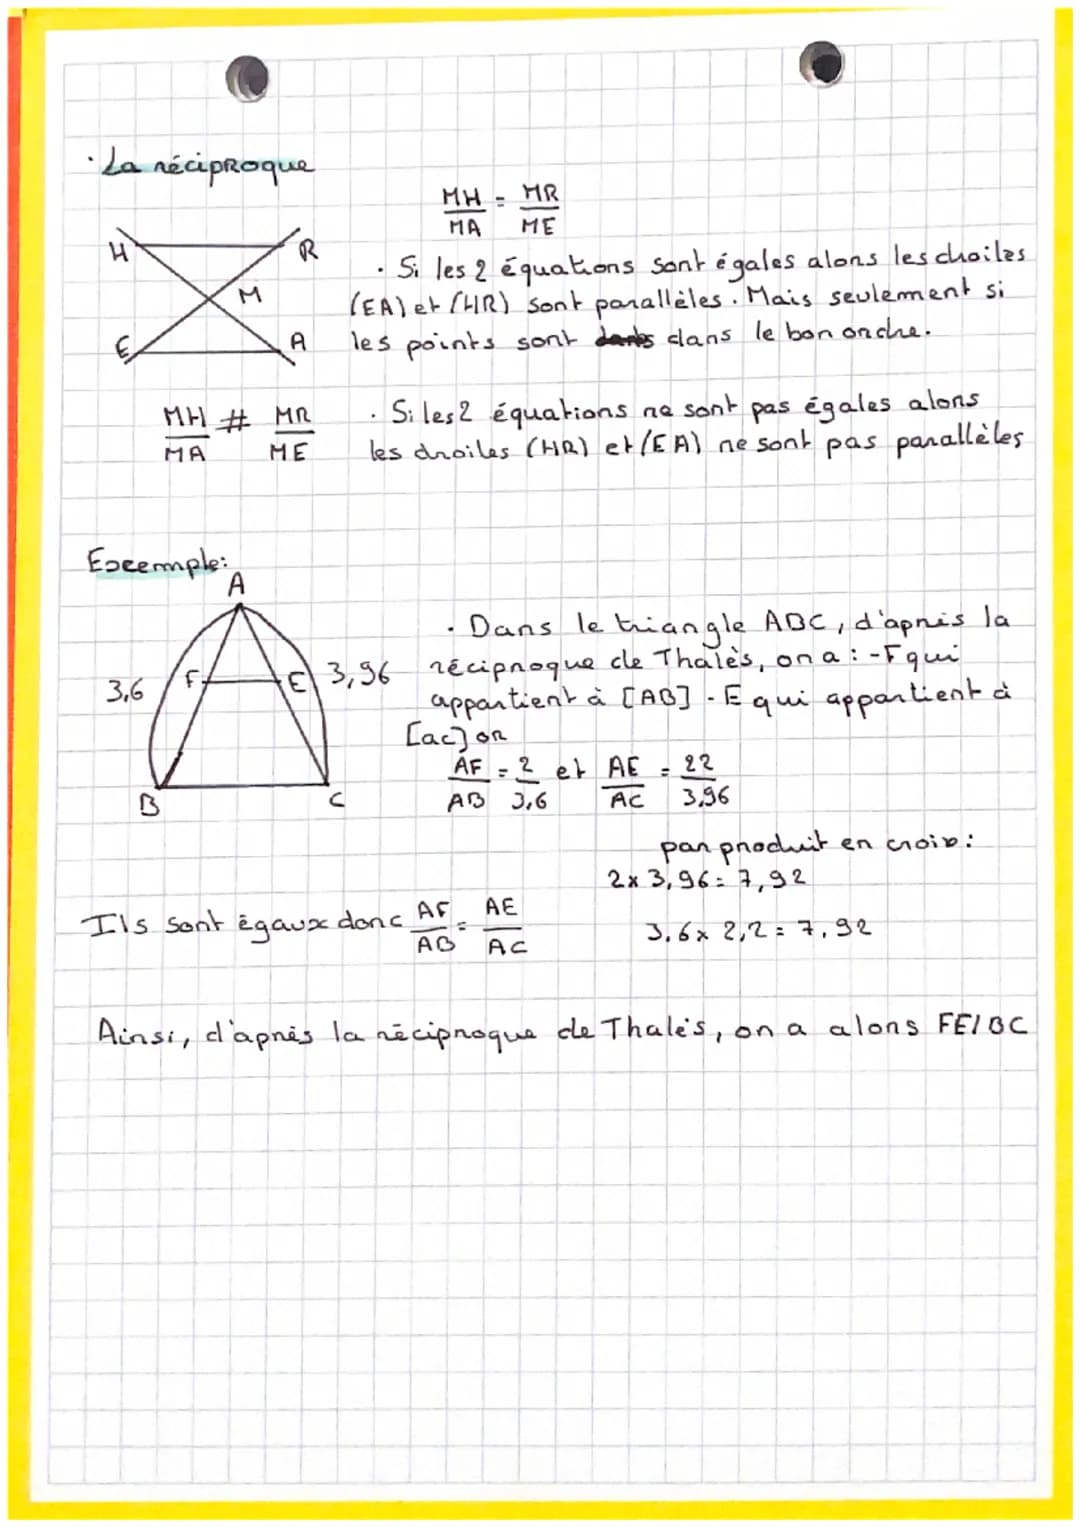 · La réciproque
MH = MR
MA ME
H R
M
E A
· Si les 2 équations sont égales alors les droites
(EA) et (HR) sont parallèles. Mais seulement si
les points sont dans le bon ordre.
MH # MR
MA ME
· Si les 2 équations ne sont pas égales alors
les droites (HR) et (EA) ne sont pas parallèles
Exemple:
A
3,6 F E 3,96
B C
· Dans le triangle ABC, d'après la
réciproque de Thalès, on a : - F qui
appartient à [AB] - E qui appartient à
[ac] or
AF = 2 et AE = 22
AB 3,6 AC 3,96
par produit en croix :
2x 3,96 = 7,92
Ils sont égaux donc AF = AE
AB AC
3,6 x 2,2 = 7,92
Ainsi, d'après la réciproque de Thalès, on a alors FE/BC